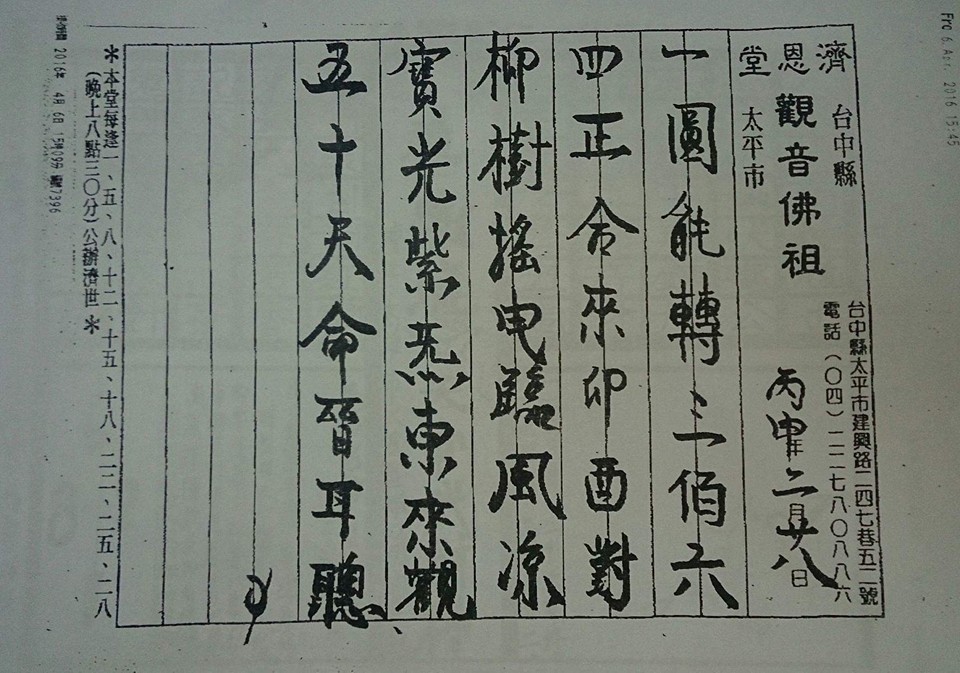 濟恩堂
台中縣
太平市
觀音佛祖
台中縣太平市建興路二四七巷五二號
電話（〇四）二二七八〇八八六
丙申年二月廿八日
一圓能轉三佰六
四正合來卯酉對
柳樹搖曳臨風涼
寶光紫炁東來觀
五十天命晉耳聽
＊本堂每逢一、五、八、十二、十五、十八、二二、二五、二八
（晚上八點三〇分）公辦濟世＊
2016年 4月 6日 15時09分
7396
6 Apr. 2016 15:45